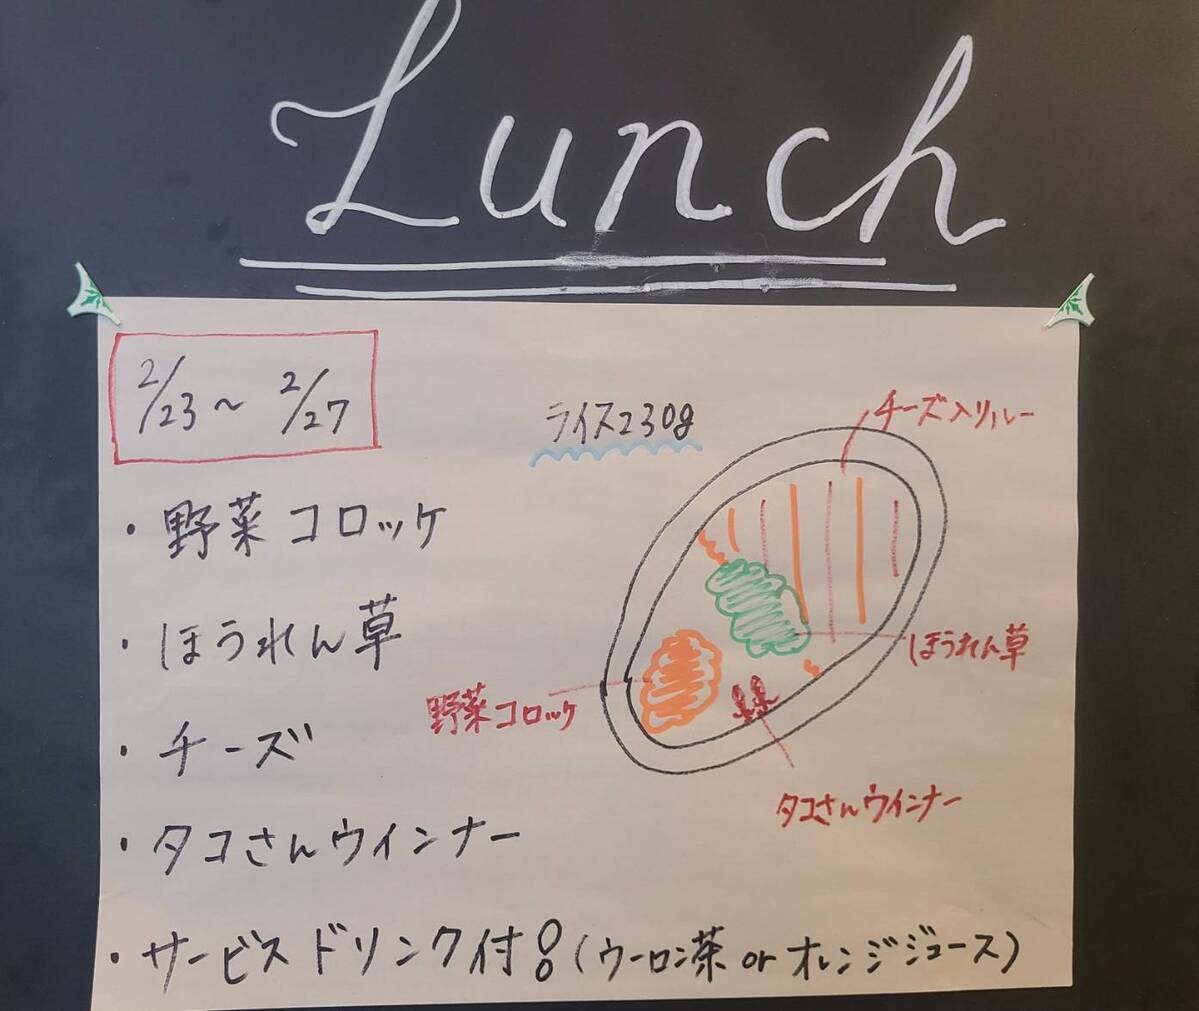 Lunch
2/23～ 2/27
ライス230g
チーズ入りルー
・野菜コロッケ
・ほうれん草
ほうれん草
野菜コロッケ
・チーズ
タコさんウインナー
・タコさんウインナー
・サービスドリンク付！(ウーロン茶 or オレンジジュース)